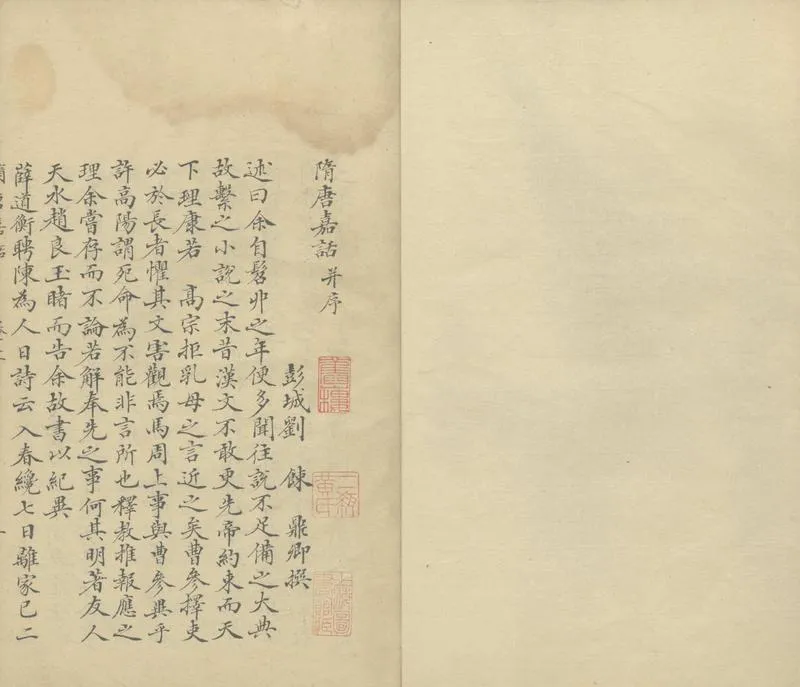 隋唐嘉話并序
彭城劉餗鼎卿撰
述曰余自髫丱之年便多聞往說不足備之大典
故繫之小說之末昔漢文不敢更先帝約束而天
下理康若 高宗拒乳母之言近之矣曹參擇吏
必於長者懼其文害觀焉馬周上事與曹參異乎
許高陽謂死命為不能非言所也釋教推報應之
理余嘗存而不論若解奉先之事何其明著友人
天水趙良玉睹而告余故書以紀異
薛道衡聘陳為人日詩云入春纔七日離家已二